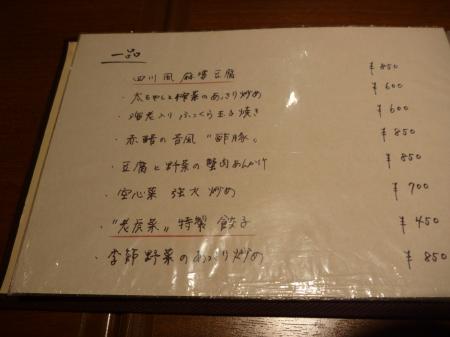 一品
四川風 麻婆豆腐 ¥850
・太もやしと搾菜のあっさり炒め ¥600
・海老入りふっくら玉子焼き ¥600
・赤酢の昔風"酢豚。 ¥850
・豆腐と野菜の蟹肉あんかけ ¥850
・空心菜 強火炒め ¥700
・"老虎菜"特製 餃子 ¥450
・季節野菜のあっさり炒め ¥850